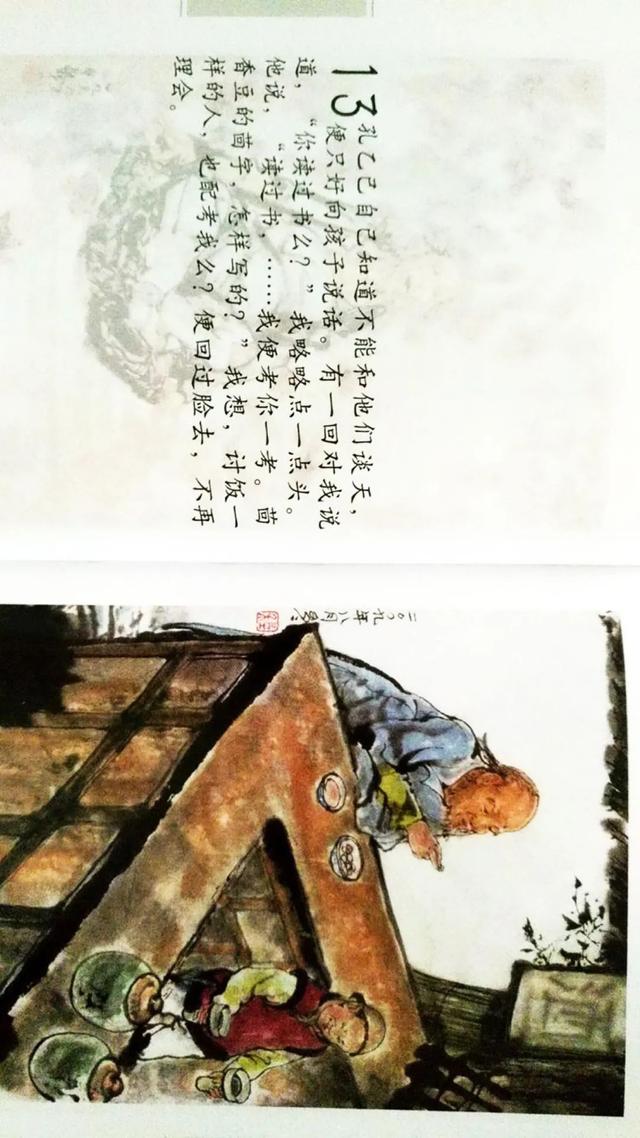 13 孔乙己自己知道不能和他们谈天，
便只好向孩子说话。有一回对我说
道，“你读过书么？”我略略点一点头。
他说，“读过书，……我便考你一考。茴
香豆的茴字，怎样写的？”我想，讨饭一
样的人，也配考我么？便回过脸去，不再
理会。
二〇〇九年八月